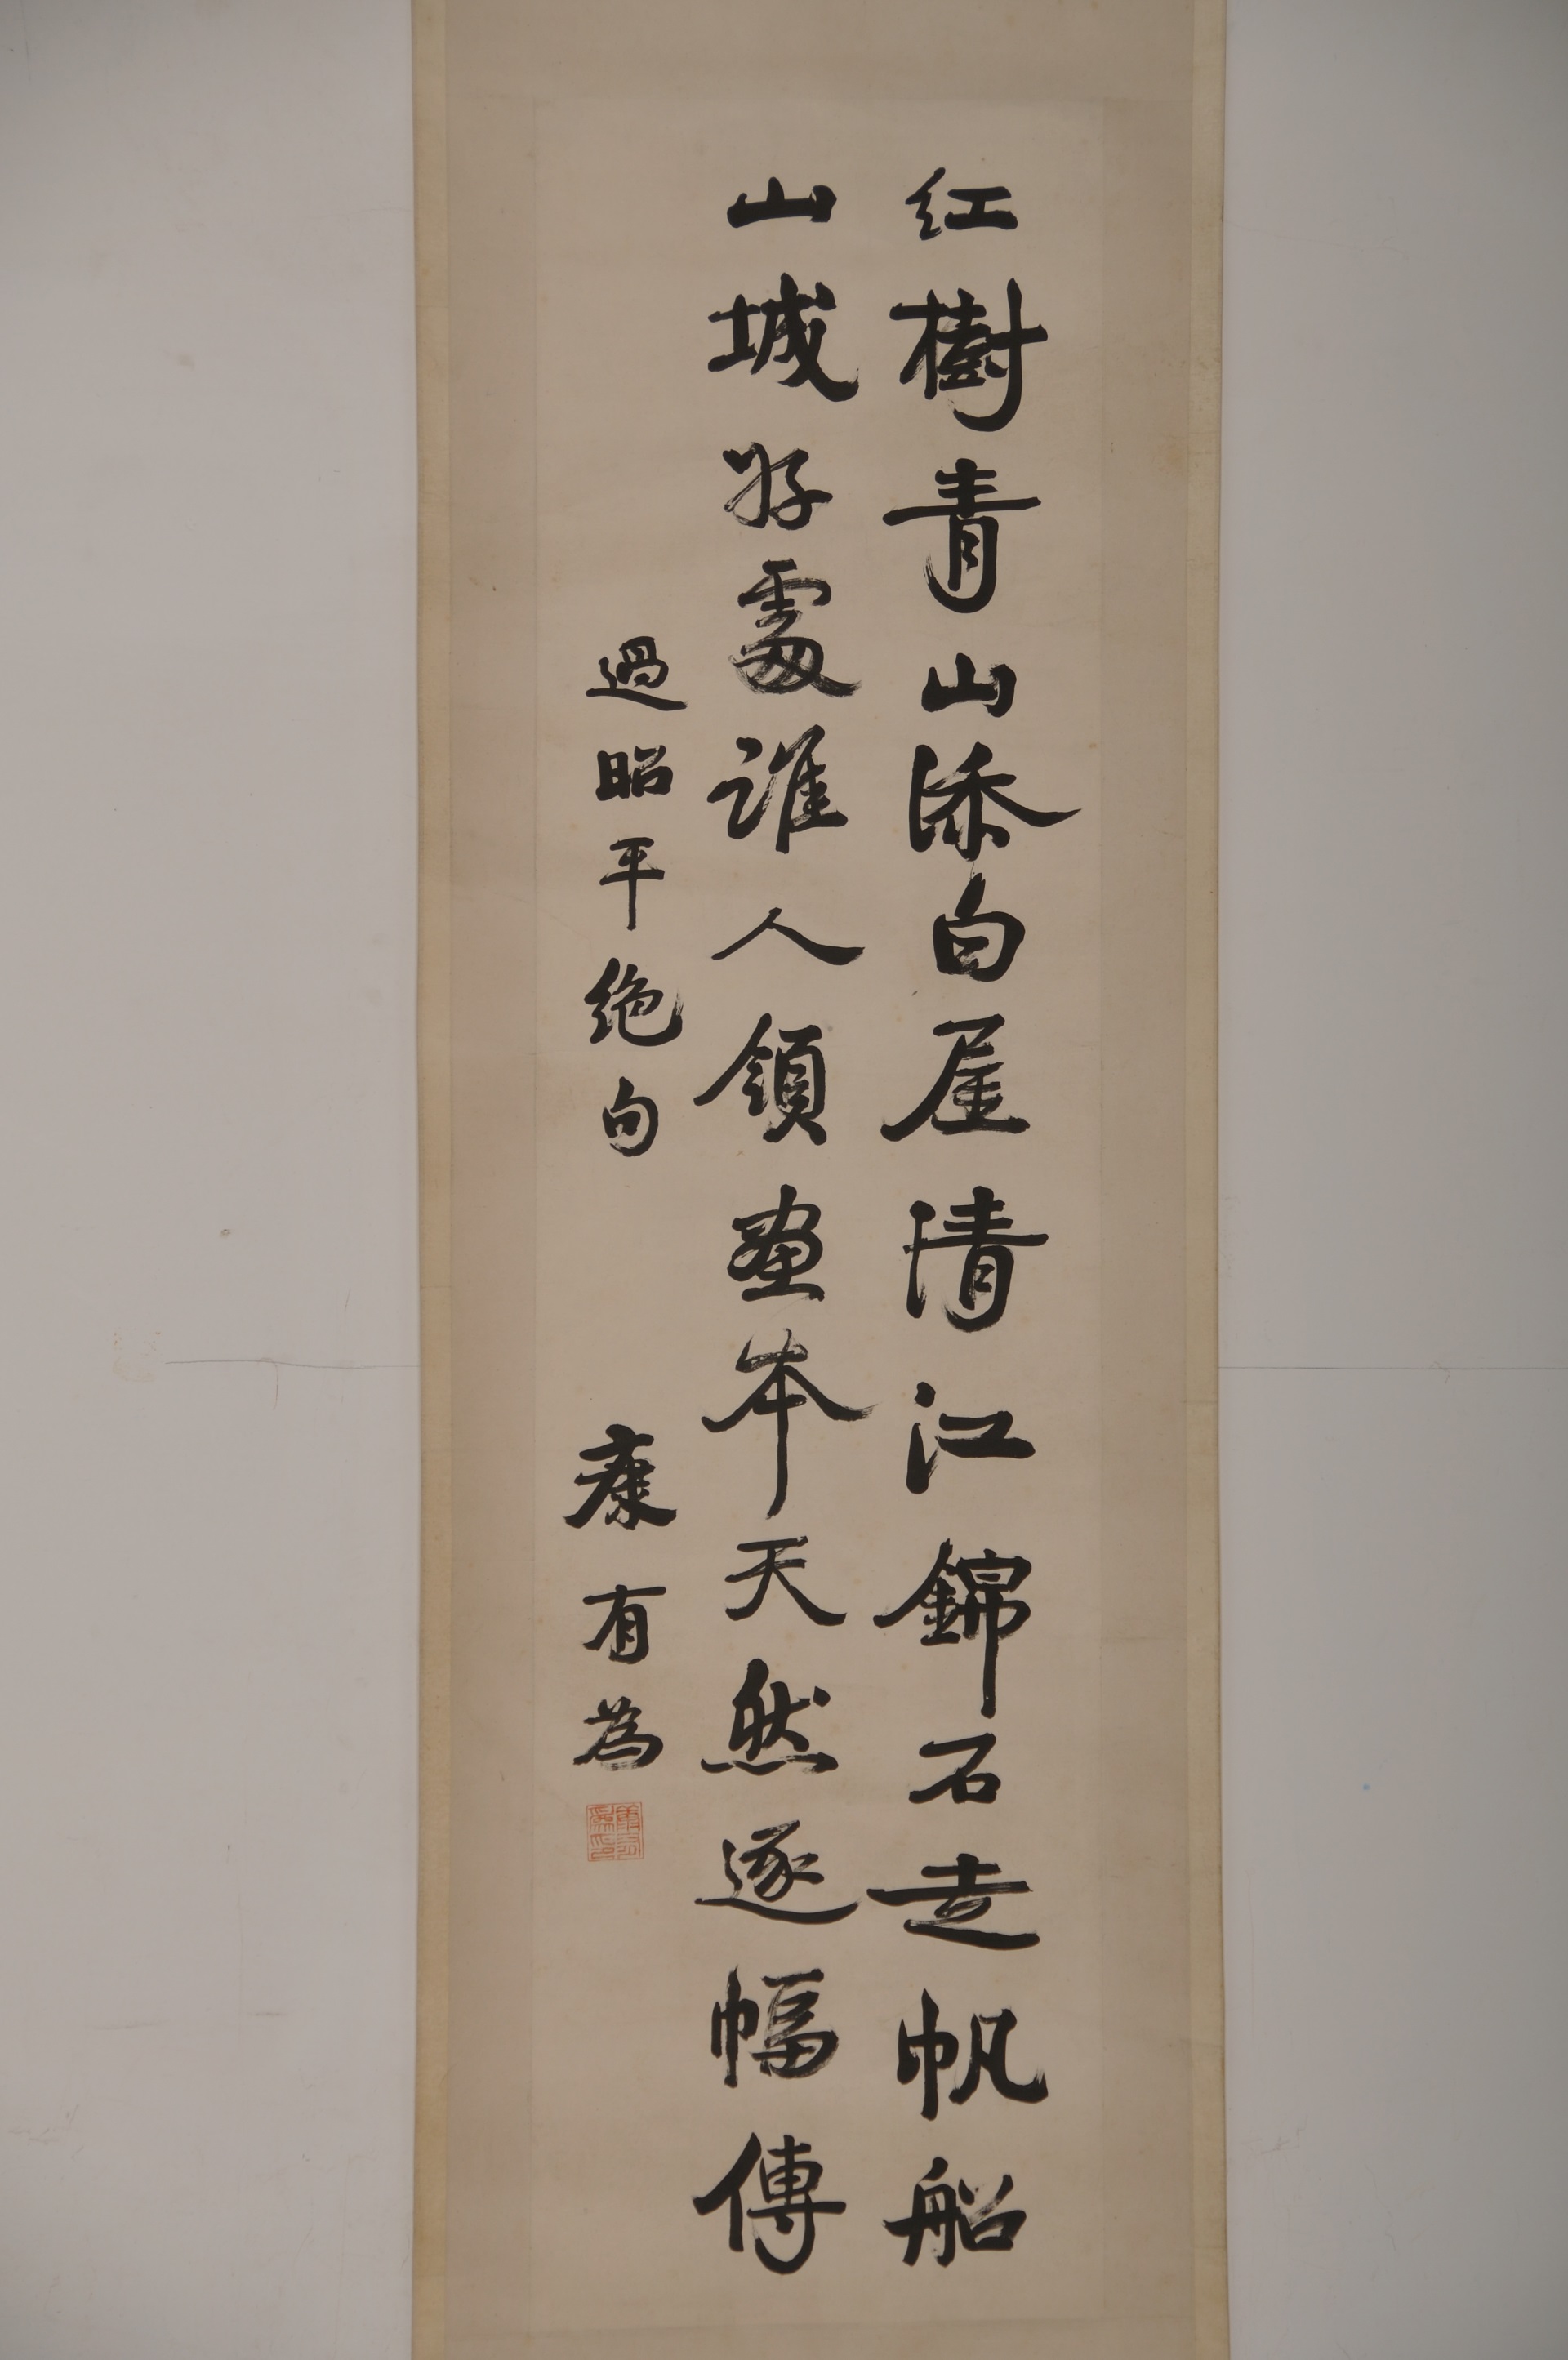 红樹青山添白屋清江錦石走帆船
山城好處誰人領畫本天然逐幅傳
過昭平绝句
康有為